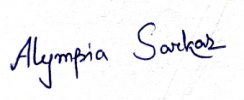 Alympia Sarkar